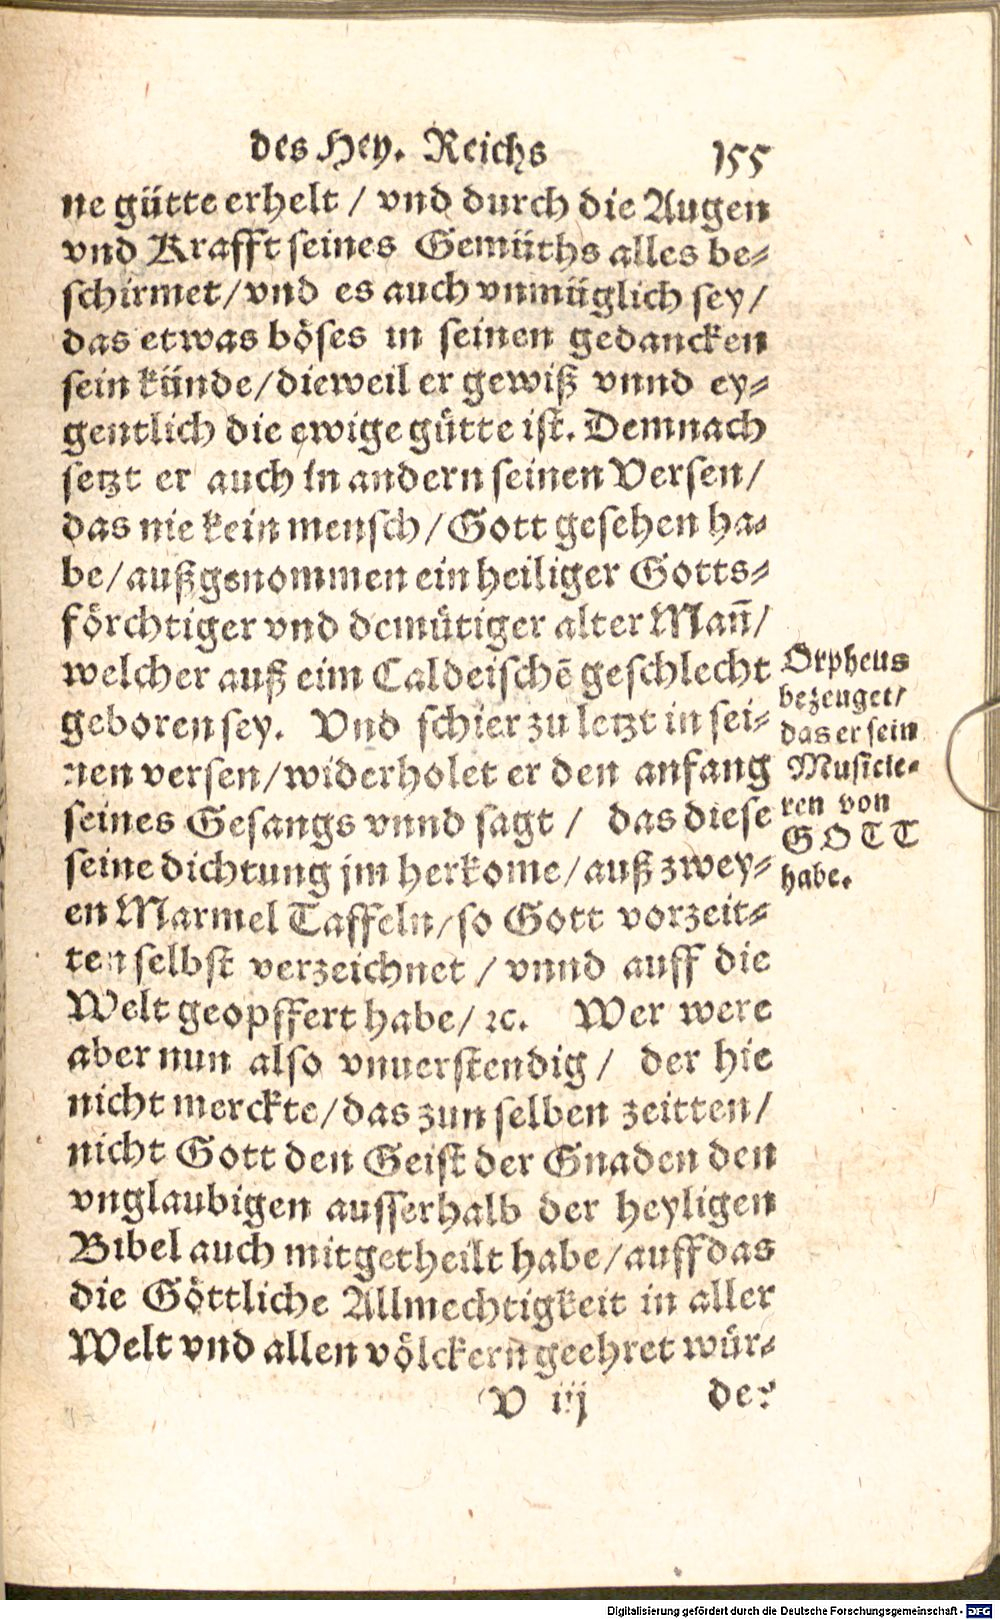 des Hey. Reichs 155
ne gütte erhelt / vnd durch die Augen
vnd Krafft seines Gemüths alles be⸗
schirmet/vnd es auch vnmüglich sey/
das etwas böses in seinen gedancken
sein künde/dieweil er gewiß vnnd ey⸗
gentlich die ewige gütte ist. Demnach
setzt er auch in andern seinen Versen/
das nie kein mensch/Gott gesehen ha⸗
be/außgenommen ein heiliger Gotts⸗
förchtiger vnd demütiger alter Man̄/
welcher auß eim Caldeischē geschlecht
geboren sey. Vnd schier zu letzt in sei⸗
nen versen/widerholet er den anfang
seines Gesangs vnnd sagt / das diese
seine dichtung jm herkome/auß zwey⸗
en Marmel Taffeln/so Gott vorzeit⸗
ten selbst verzeichnet / vnnd auff die
Welt geopffert habe/ ꝛc. Wer were
aber nun also vnuerstendig / der hie
nicht merckte/das zun selben zeitten/
nicht Gott den Geist der Gnaden den
vnglaubigen ausserhalb der heyligen
Bibel auch mitgetheilt habe/auffdas
die Göttliche Allmechtigkeit in aller
Welt vnd allen völckern geehret wür⸗
V iij de:
Orpheus
bezeuget/
das er sein
Musicie⸗
ren von
GOTT
habe.
Digitalisierung gefördert durch die Deutsche Forschungsgemeinschaft - DFG